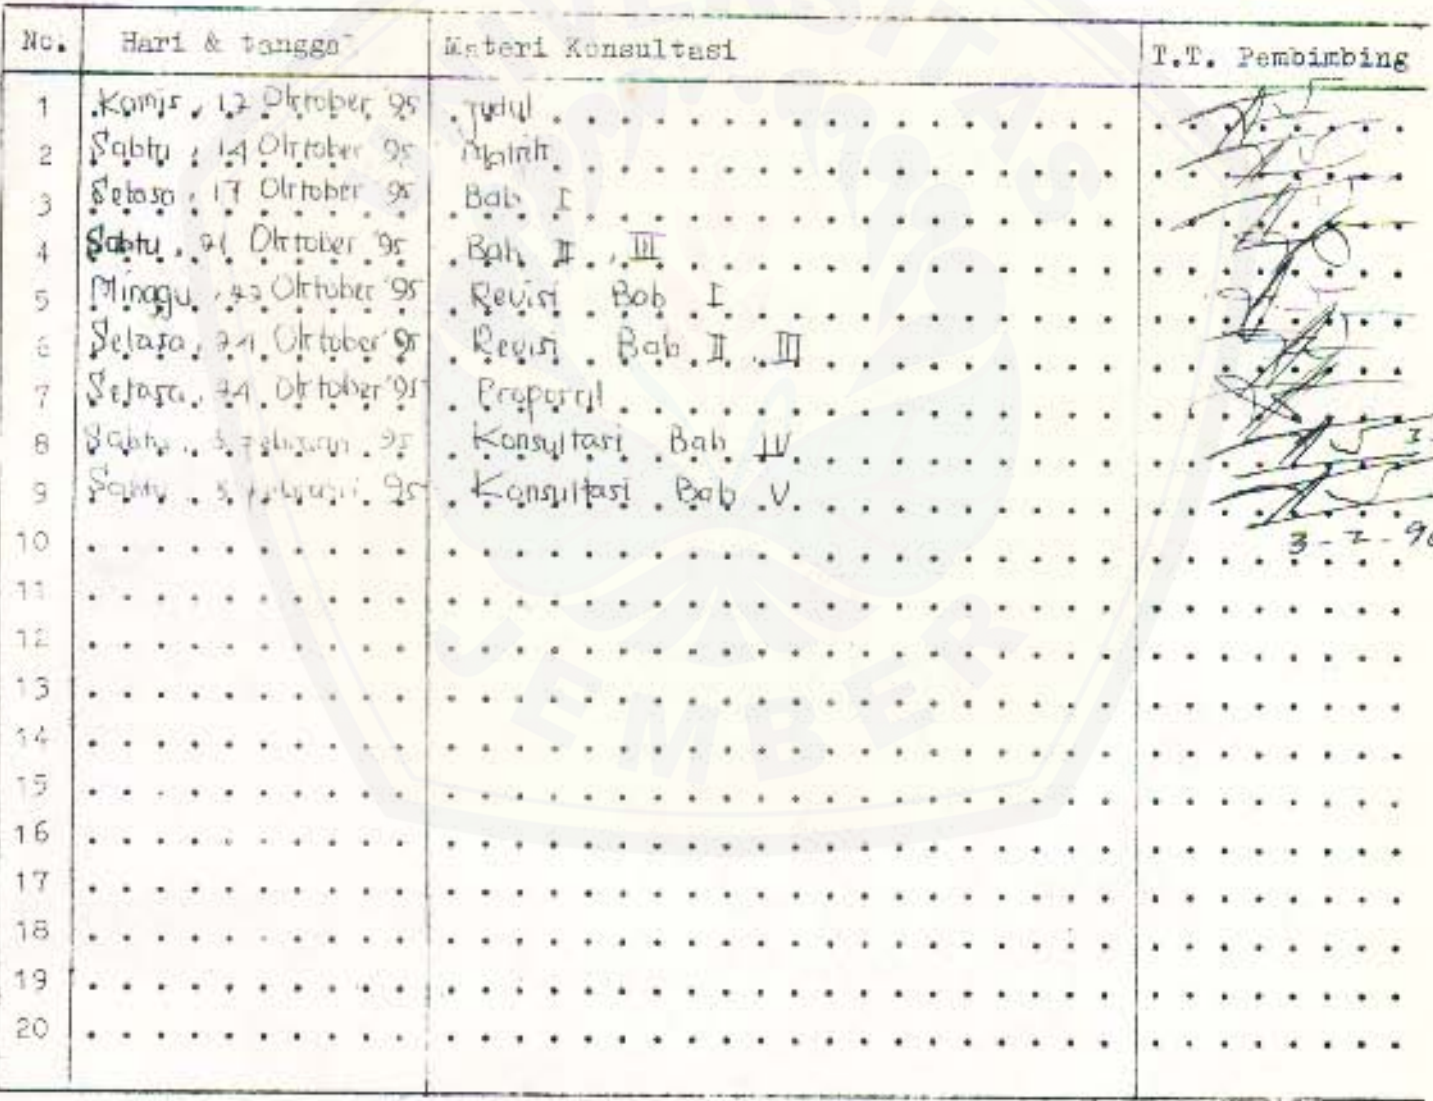 No. Hari & tanggal Materi Konsultasi T.T. Pembimbing
1 Kamis, 12 Oktober '95 Judul
2 Sabtu, 14 Oktober '95 Matrik
3 Selasa, 17 Oktober '95 Bab I
4 Sabtu, 21 Oktober '95 Bab II, III
5 Minggu, 22 Oktober '95 Revisi Bab I
6 Selasa, 24 Oktober '95 Revisi Bab II, III
7 Selasa, 24 Oktober '95 Proposal
8 Sabtu, 3 Februari 95 Konsultasi Bab IV
9 Sabtu, 3 Februari 95 Konsultasi Bab V
3-2-96
10
11
12
13
14
15
16
17
18
19
20
JEMBER